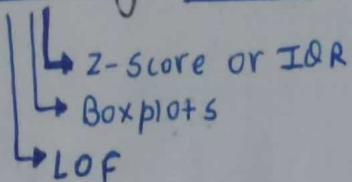 Z-Score or IQR
Boxplots
LOF